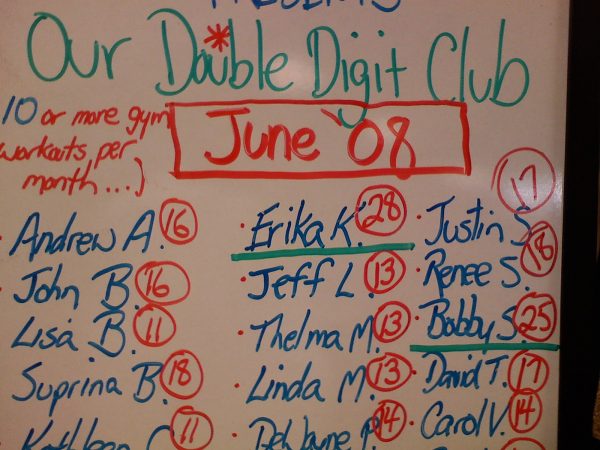 PRESENTS
Our Double Digit Club
10 or more gym
workouts per
month...)
June '08
Andrew A. 16
John B. 16
Lisa B. 11
Suprina B. 18
Kathleen C. 11
Erika K. 28
Jeff L. 13
Thelma M. 13
Linda M. 13
DeWayne P. 14
Justin S. 17
Renee S. 18
Bobby S. 25
David T. 17
Carol V. 14